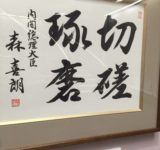 切磋
琢磨
内閣総理大臣
森喜朗